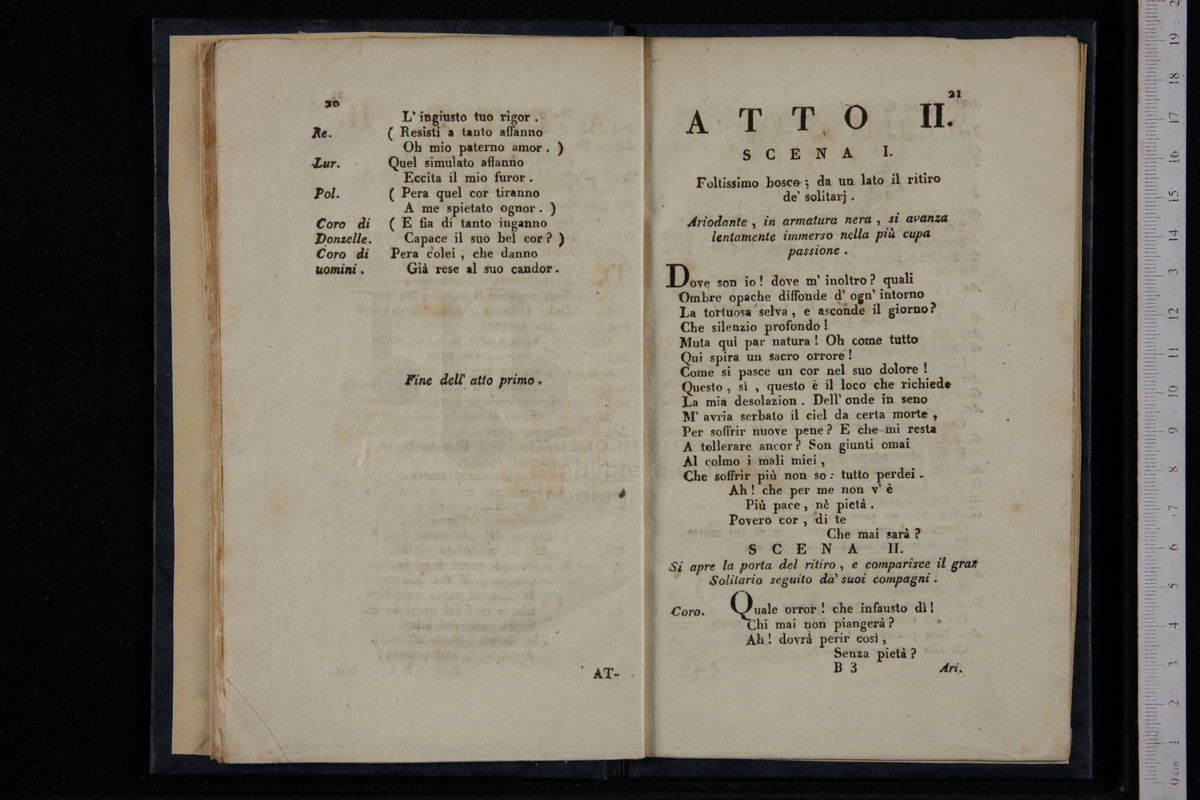 20
L' ingiusto tuo rigor .
Re. ( Resisti a tanto affanno
Oh mio paterno amor . )
Lur. Quel simulato affanno
Eccita il mio furor .
Pol. ( Pera quel cor tiranno
A me spietato ognor . )
Coro di ( E fia di tanto inganno
Donzelle. Capace il suo bel cor ? )
Coro di Pera colei , che danno
uomini . Già rese al suo candor .
Fine dell' atto primo .
AT-
21
ATTO II.
SCENA I.
Foltissimo bosco ; da un lato il ritiro
de' solitarj .
Ariodante , in armatura nera , si avanza
lentamente immerso nella più cupa
passione .
Dove son io ! dove m' inoltro ? quali
Ombre opache diffonde d' ogn' intorno
La tortuosa selva , e asconde il giorno ?
Che silenzio profondo !
Muta qui par natura ! Oh come tutto
Qui spira un sacro orrore !
Come si pasce un cor nel suo dolore !
Questo , sì , questo è il loco che richiede
La mia desolazion . Dell' onde in seno
M' avria serbato il ciel da certa morte ,
Per soffrir nuove pene ? E che mi resta
A tollerare ancor ? Son giunti omai
Al colmo i mali miei ,
Che soffrir più non so : tutto perdei .
Ah ! che per me non v' è
Più pace , nè pietà .
Povero cor , di te
Che mai sarà ?
SCENA II.
Si apre la porta del ritiro , e comparisce il gran
Solitario seguito da' suoi compagni .
Coro. Quale orror ! che infausto dì !
Chi mai non piangerà ?
Ah ! dovrà perir così ,
Senza pietà ?
B 3 Ari.
0 cm 1 2 3 4 5 6 7 8 9 10 11 12 13 14 15 16 17 18 19